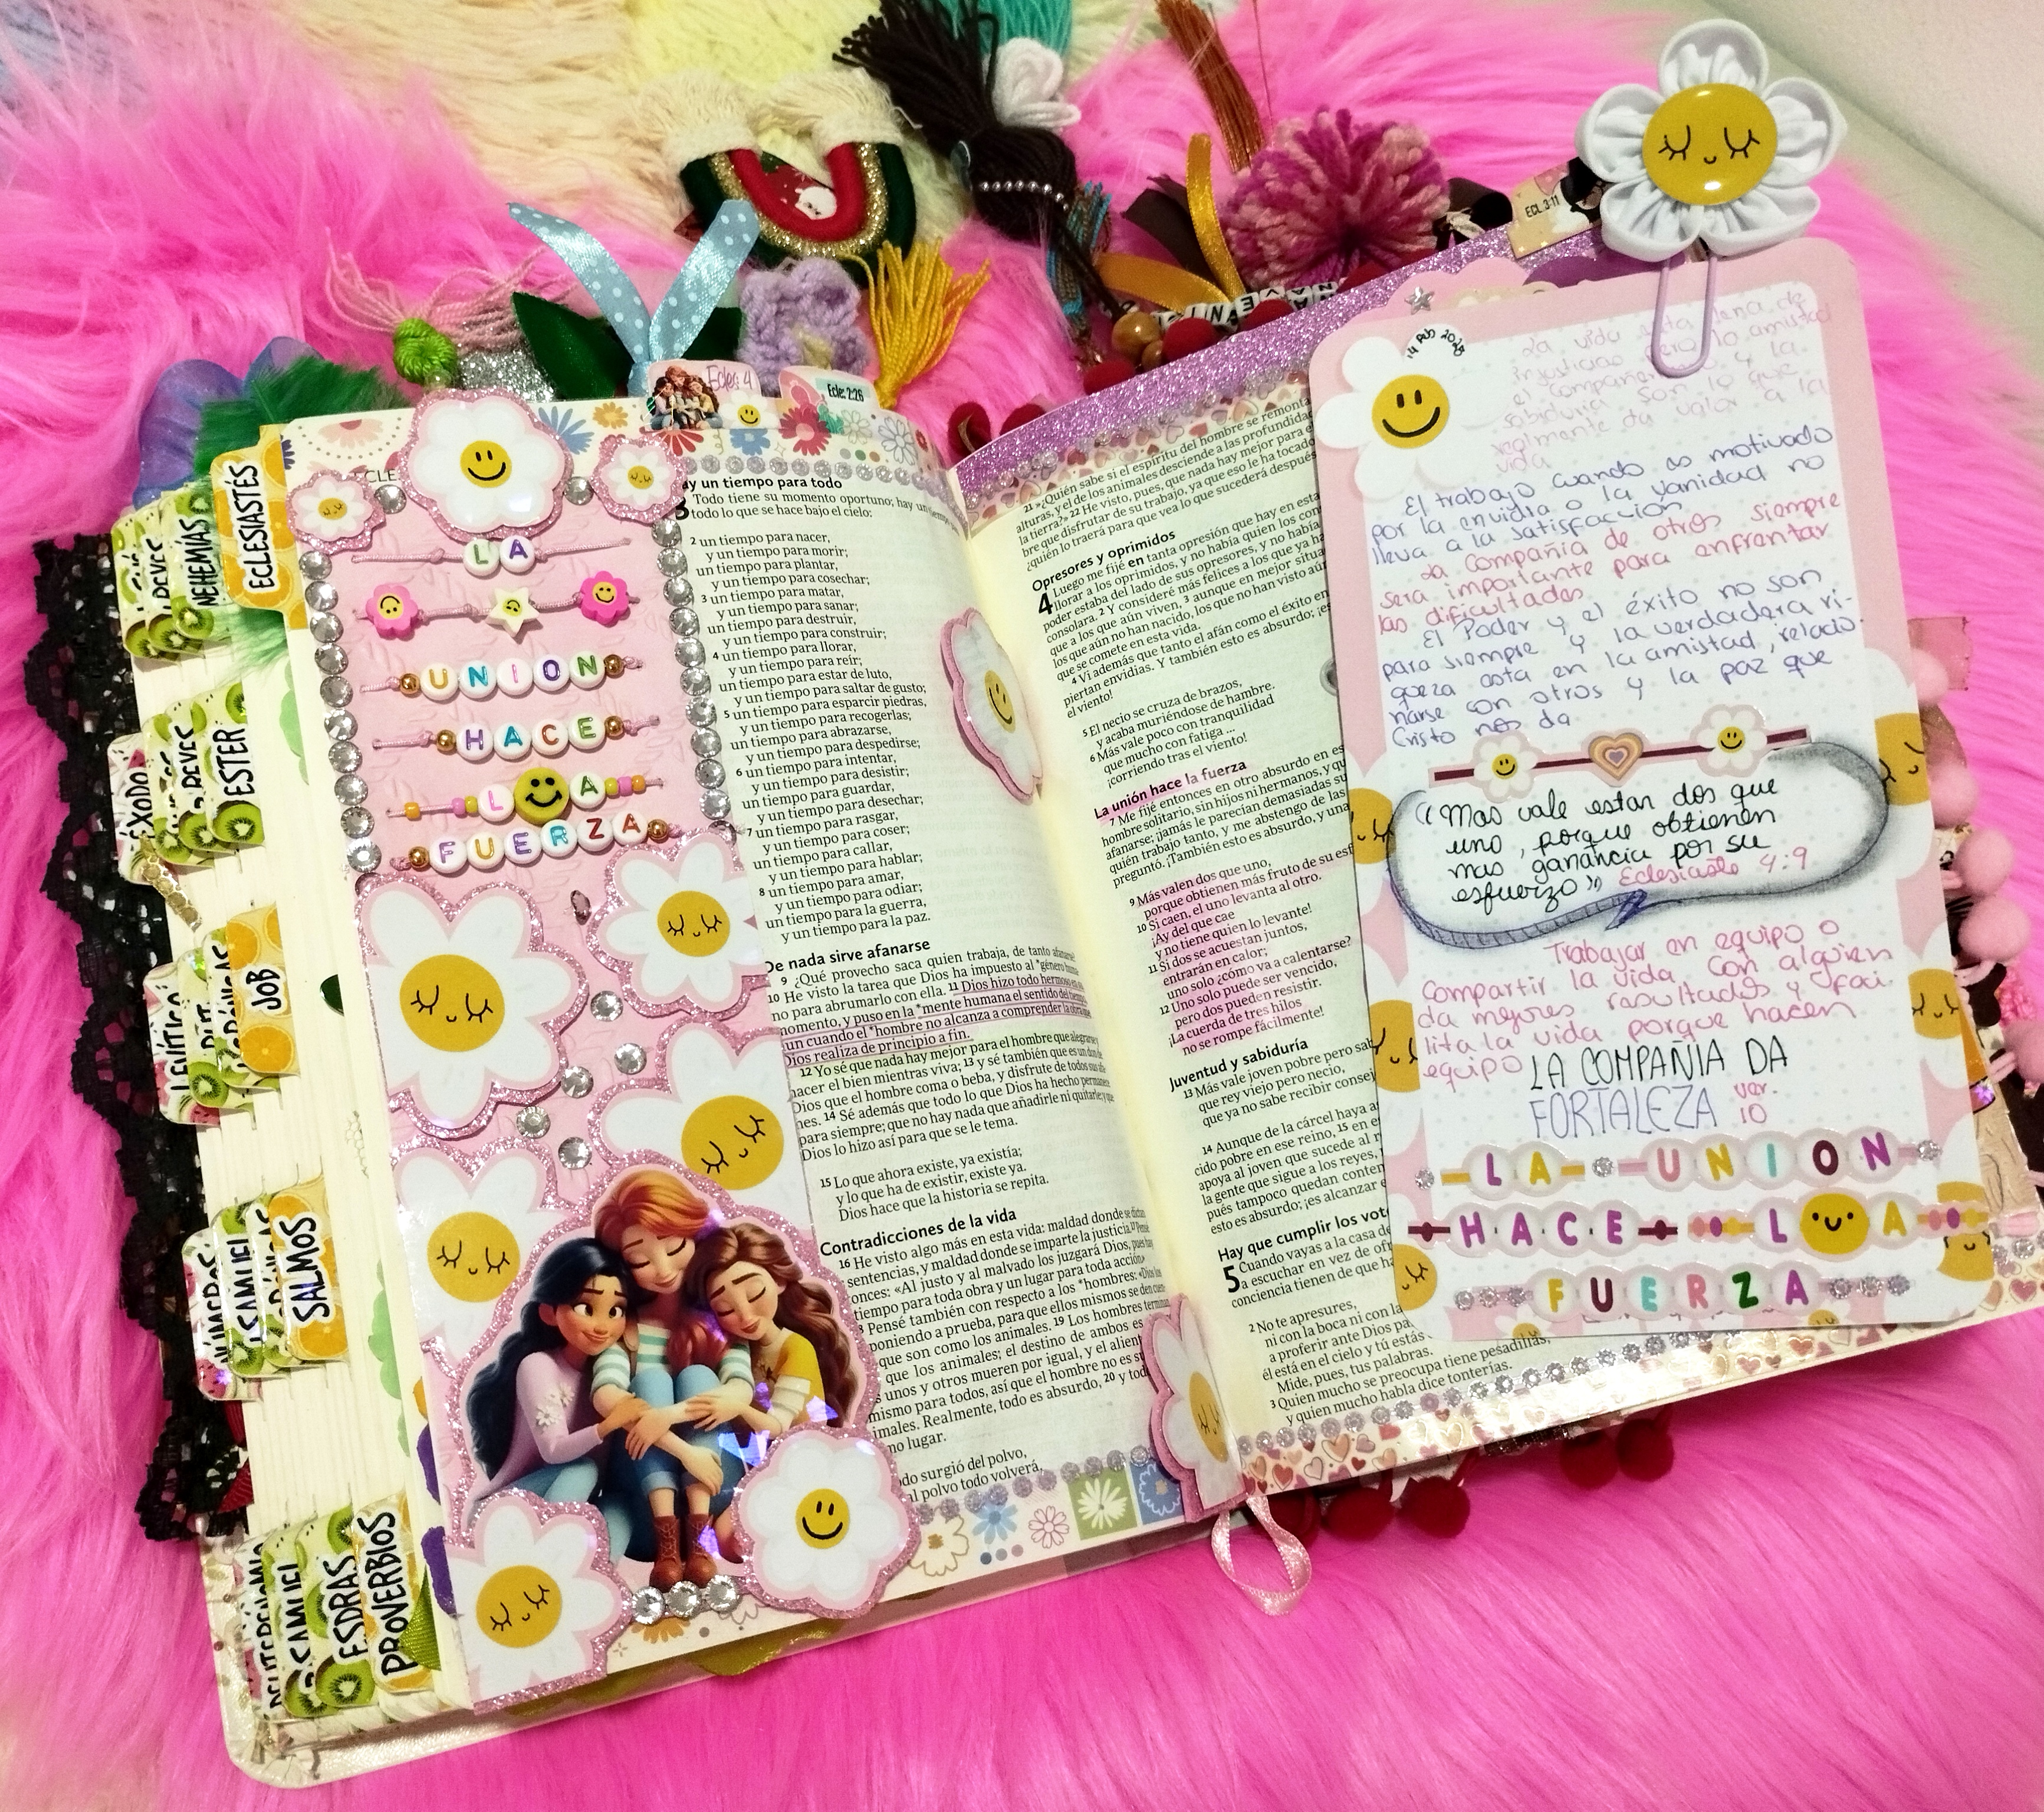 ECLESIASTÉS
NEHEMÍAS
REYES
ESTER
REYES
ÉXODO
JOB
CRÓNICAS
RUT
LEVÍTICO
SALMOS
SAMUEL
NÚMEROS
PROVERBIOS
ESDRAS
SAMUEL
Ecles: 4
Ecle: 2:26
ECL 3:11
ECLE
LA
UNION
HACE
L A
FUERZA
ay un tiempo para todo
3 Todo tiene su momento oportuno; hay un tiempo
todo lo que se hace bajo el cielo:
2 un tiempo para nacer,
y un tiempo para morir;
un tiempo para plantar,
y un tiempo para cosechar;
3 un tiempo para matar,
y un tiempo para sanar;
un tiempo para destruir,
y un tiempo para construir;
4 un tiempo para llorar,
y un tiempo para reír;
un tiempo para estar de luto,
y un tiempo para saltar de gusto;
5 un tiempo para esparcir piedras,
y un tiempo para recogerlas;
un tiempo para abrazarse,
y un tiempo para despedirse;
6 un tiempo para intentar,
y un tiempo para desistir;
un tiempo para guardar,
y un tiempo para desechar;
7 un tiempo para rasgar,
y un tiempo para coser;
un tiempo para callar,
y un tiempo para hablar;
8 un tiempo para amar,
y un tiempo para odiar;
un tiempo para la guerra,
y un tiempo para la paz.
De nada sirve afanarse
9 ¿Qué provecho saca quien trabaja, de tanto afanarse
10 He visto la tarea que Dios ha impuesto al *género
no para abrumarlo con ella. 11 Dios hizo todo hermoso
momento, y puso en la *mente humana el sentido del tiempo,
un cuando el *hombre no alcanza a comprender la obra que
Dios realiza de principio a fin.
12 Yo sé que nada hay mejor para el hombre que alegrarse y
hacer el bien mientras viva; 13 y sé también que es un don de
Dios que el hombre coma o beba, y disfrute de todos sus
nes. 14 Sé además que todo lo que Dios ha hecho permanece
para siempre; que no hay nada que añadirle ni quitarle; y que
Dios lo hizo así para que se le tema.
15 Lo que ahora existe, ya existía;
y lo que ha de existir, existe ya.
Dios hace que la historia se repita.
Contradicciones de la vida
16 He visto algo más en esta vida: maldad donde se dictan
sentencias, y maldad donde se imparte la justicia. 17 Pensé
onces: «Al justo y al malvado los juzgará Dios, pues hay
tiempo para toda obra y un lugar para toda acción»
Pensé también con respecto a los *hombres: «Dios los
poniendo a prueba, para que ellos mismos se den cuen
que son como los animales. 19 Los hombres terminan
que los animales; el destino de ambos es
unos y otros mueren por igual, y el alient
mismo para todos, así que el hombre no es su
imales. Realmente, todo es absurdo, 20 y tod
no lugar.
odo surgió del polvo,
al polvo todo volverá.
21 »¿Quién sabe si el espíritu del hombre se remonta
alturas, y el de los animales desciende a las profundidades
la tierra?» 22 He visto, pues, que nada hay mejor para el
bre que disfrutar de su trabajo, ya que eso le ha tocado
¿quién lo traerá para que vea lo que sucederá después
Opresores y oprimidos
4 Luego me fijé en tanta opresión que hay en esta
llorar a los oprimidos, y no había quien los con
poder estaba del lado de sus opresores, y no había
consolara. 2 Y consideré más felices a los que ya ha
que a los que aún viven, 3 aunque en mejor situa
los que aún no han nacido, los que no han visto aún
que se comete en esta vida.
4 Vi además que tanto el afán como el éxito en
piertan envidias. Y también esto es absurdo; ¡es
el viento!
5 El necio se cruza de brazos,
y acaba muriéndose de hambre.
6 Más vale poco con tranquilidad
que mucho con fatiga ...
¡corriendo tras el viento!
La unión hace la fuerza
7 Me fijé entonces en otro absurdo en es
hombre solitario, sin hijos ni hermanos, y qu
afanarse; ¡jamás le parecían demasiadas su
quién trabajo tanto, y me abstengo de las
preguntó. ¡También esto es absurdo, y una
9 Más valen dos que uno,
porque obtienen más fruto de su esf
10 Si caen, el uno levanta al otro.
¡Ay del que cae
y no tiene quien lo levante!
11 Si dos se acuestan juntos,
entrarán en calor;
uno solo ¿cómo va a calentarse?
12 Uno solo puede ser vencido,
pero dos pueden resistir.
¡La cuerda de tres hilos
no se rompe fácilmente!
Juventud y sabiduría
13 Más vale joven pobre pero sab
que rey viejo pero necio,
que ya no sabe recibir consej
14 Aunque de la cárcel haya a
cido pobre en ese reino, 15 en e
apoya al joven que sucede al r
la gente que sigue a los reyes,
pués tampoco quedan conten
esto es absurdo; ¡es alcanzar e
Hay que cumplir los vot
5 Cuando vayas a la casa de
a escuchar en vez de ofr
conciencia tienen de que ha
2 No te apresures,
ni con la boca ni con la
a proferir ante Dios pa
él está en el cielo y tú estás
Mide, pues, tus palabras.
3 Quien mucho se preocupa tiene pesadillas,
y quien mucho habla dice tonterías.
14 Feb 2025
La vida esta llena de
injusticias pero la amistad
el compañerismo y la
sabiduria son lo que
realmente da valor a la
vida
El trabajo cuando es motivado
por la envidia o la vanidad no
lleva a la satisfacción
La compañía de otros siempre
sera importante para enfrentar
las dificultades
El Poder y el éxito no son
para siempre y la verdadera ri-
queza esta en la amistad, relacio-
narse con otros y la paz que
Cristo nos da
"Mas vale estar dos que
uno, porque obtienen
mas ganancia por su
esfuerzo" Eclesiastes 4:9
Trabajar en equipo o
compartir la vida con alguien
da mejores resultados y faci-
lita la vida porque hacen
equipo
LA COMPAÑIA DA
FORTALEZA ver.
10
LA UNION
HACE L A
FUERZA